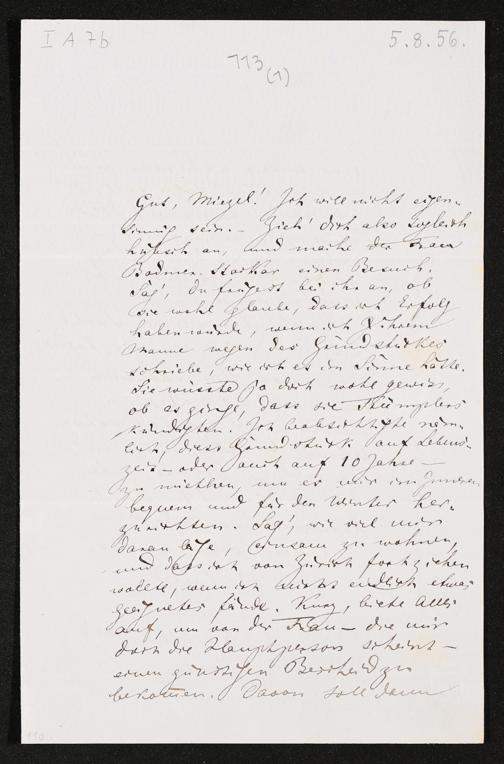 I A 7b
5.8.56.
113
(1)
Gut, Minzel! Ich will nicht eigen-
sinnig sein. – Zieh' dich also sogleich
hübsch an, und mache der Frau
Bodmer-Stockar einen Besuch.
Sag', Du frügest bei ihr an, ob
sie wohl glaube, dass ich Erfolg
haben würde, wenn ich ihrem
Manne wegen des Grundstückes
schriebe, wie ich es im Sinne hätte.
Sie wüsste ja doch wohl gewiss,
ob es ginge, dass sie Thümplers
kündigten. Ich beabsichtigte näm-
lich, diess Grundstück auf Lebens-
zeit – oder auch auf 10 Jahre –
zu miethen, um es mir im Inneren
bequem und für den Winter her-
zurichten. Sag', wie viel mir
daran läge, einsam zu wohnen,
und dass ich von Zürich fortziehen
wollte, wenn ich nicht endlich etwas
geeignetes fände. Kurz, biete Alles
auf, um von der Frau – die mir
doch die Hauptperson scheint –
einen günstigen Bescheid zu
bekommen. Davon soll dann
110.